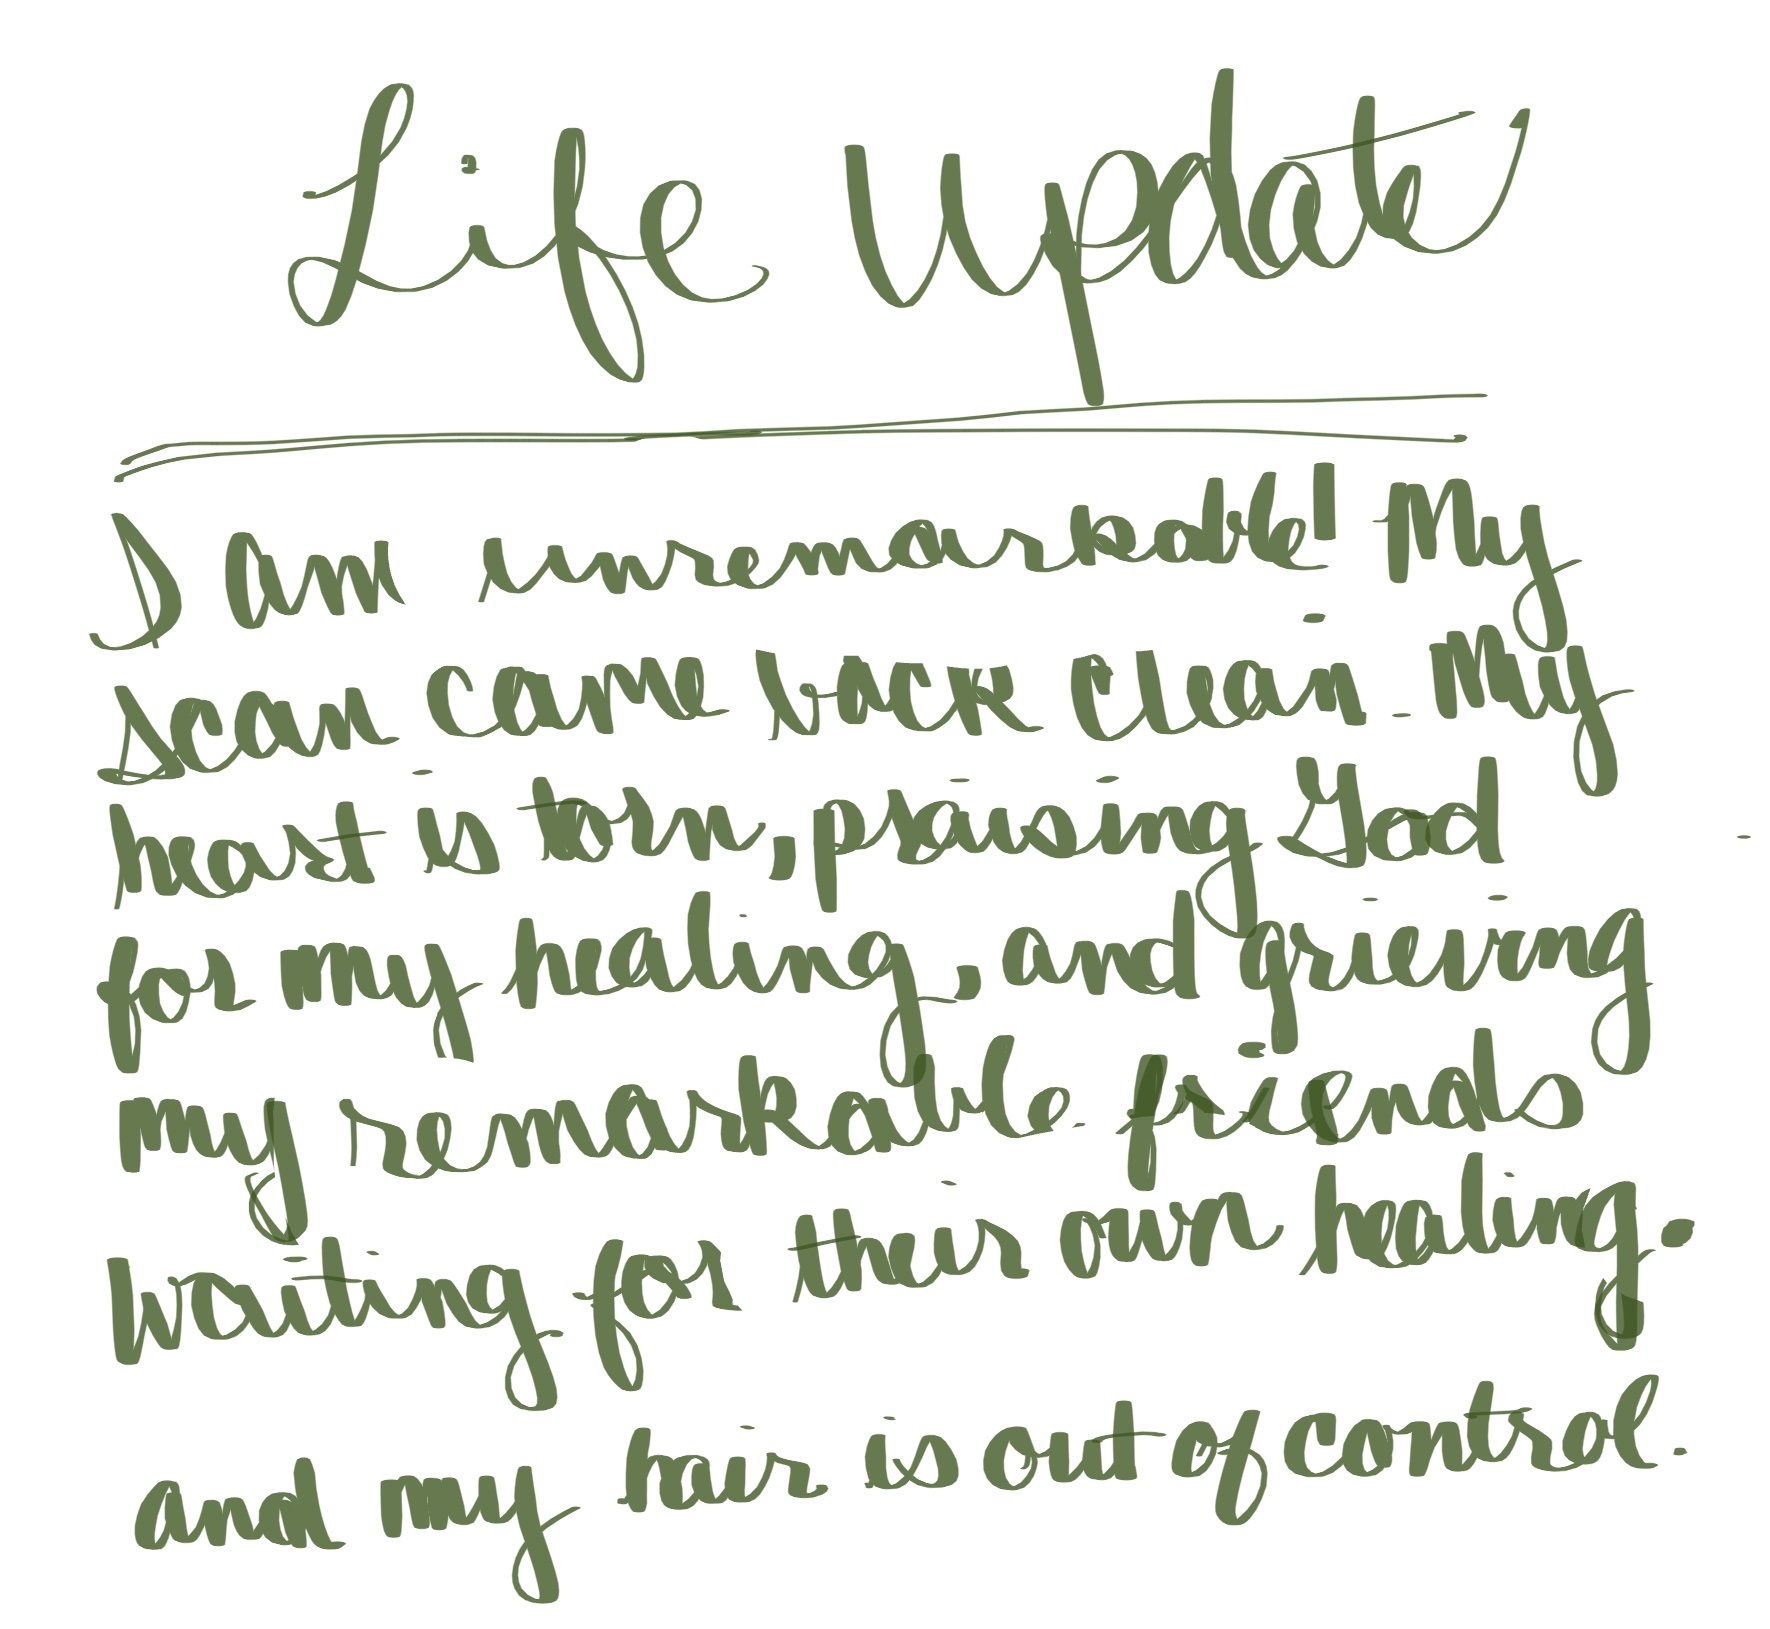 Life Update
I am unremarkable! My
scan came back clean. My
heart is torn, praising God
for my healing, and grieving
my remarkable friends
waiting for their own healing.
and my hair is out of control.